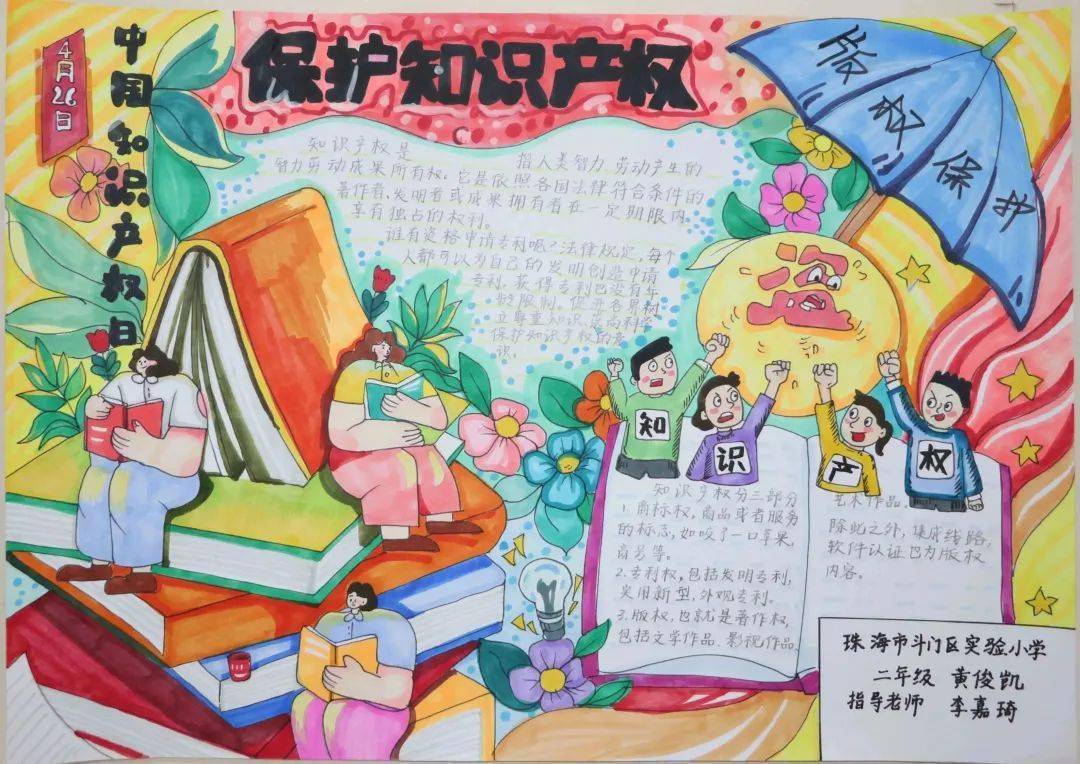 保护知识产权
4月26日
中国知识产权日
知识产权是 指人类智力劳动产生的
智力劳动成果所有权。它是依照各国法律符合条件的
著作者、发明者或成果拥有者在一定期限内
享有独占的权利。
谁有资格申请专利呢?法律规定,每个
人都可以为自己的发明创造申请
专利,获得专利也没有年
龄限制。促进各界树
立尊重知识、崇尚科学
保护知识产权的意
识。
权保护
盗
知
识
产
权
知识产权分三部分
1.商标权,商品或者服务
的标志,如咬了一口苹果
商号等。
2.专利权,包括发明专利,
实用新型,外观专利。
3.版权,也就是著作权,
包括文学作品、影视作品、
艺术作品。
除此之外,集成线路,
软件认证也为版权
内容。
珠海市斗门区实验小学
二年级 黄俊凯
指导老师 李嘉琦